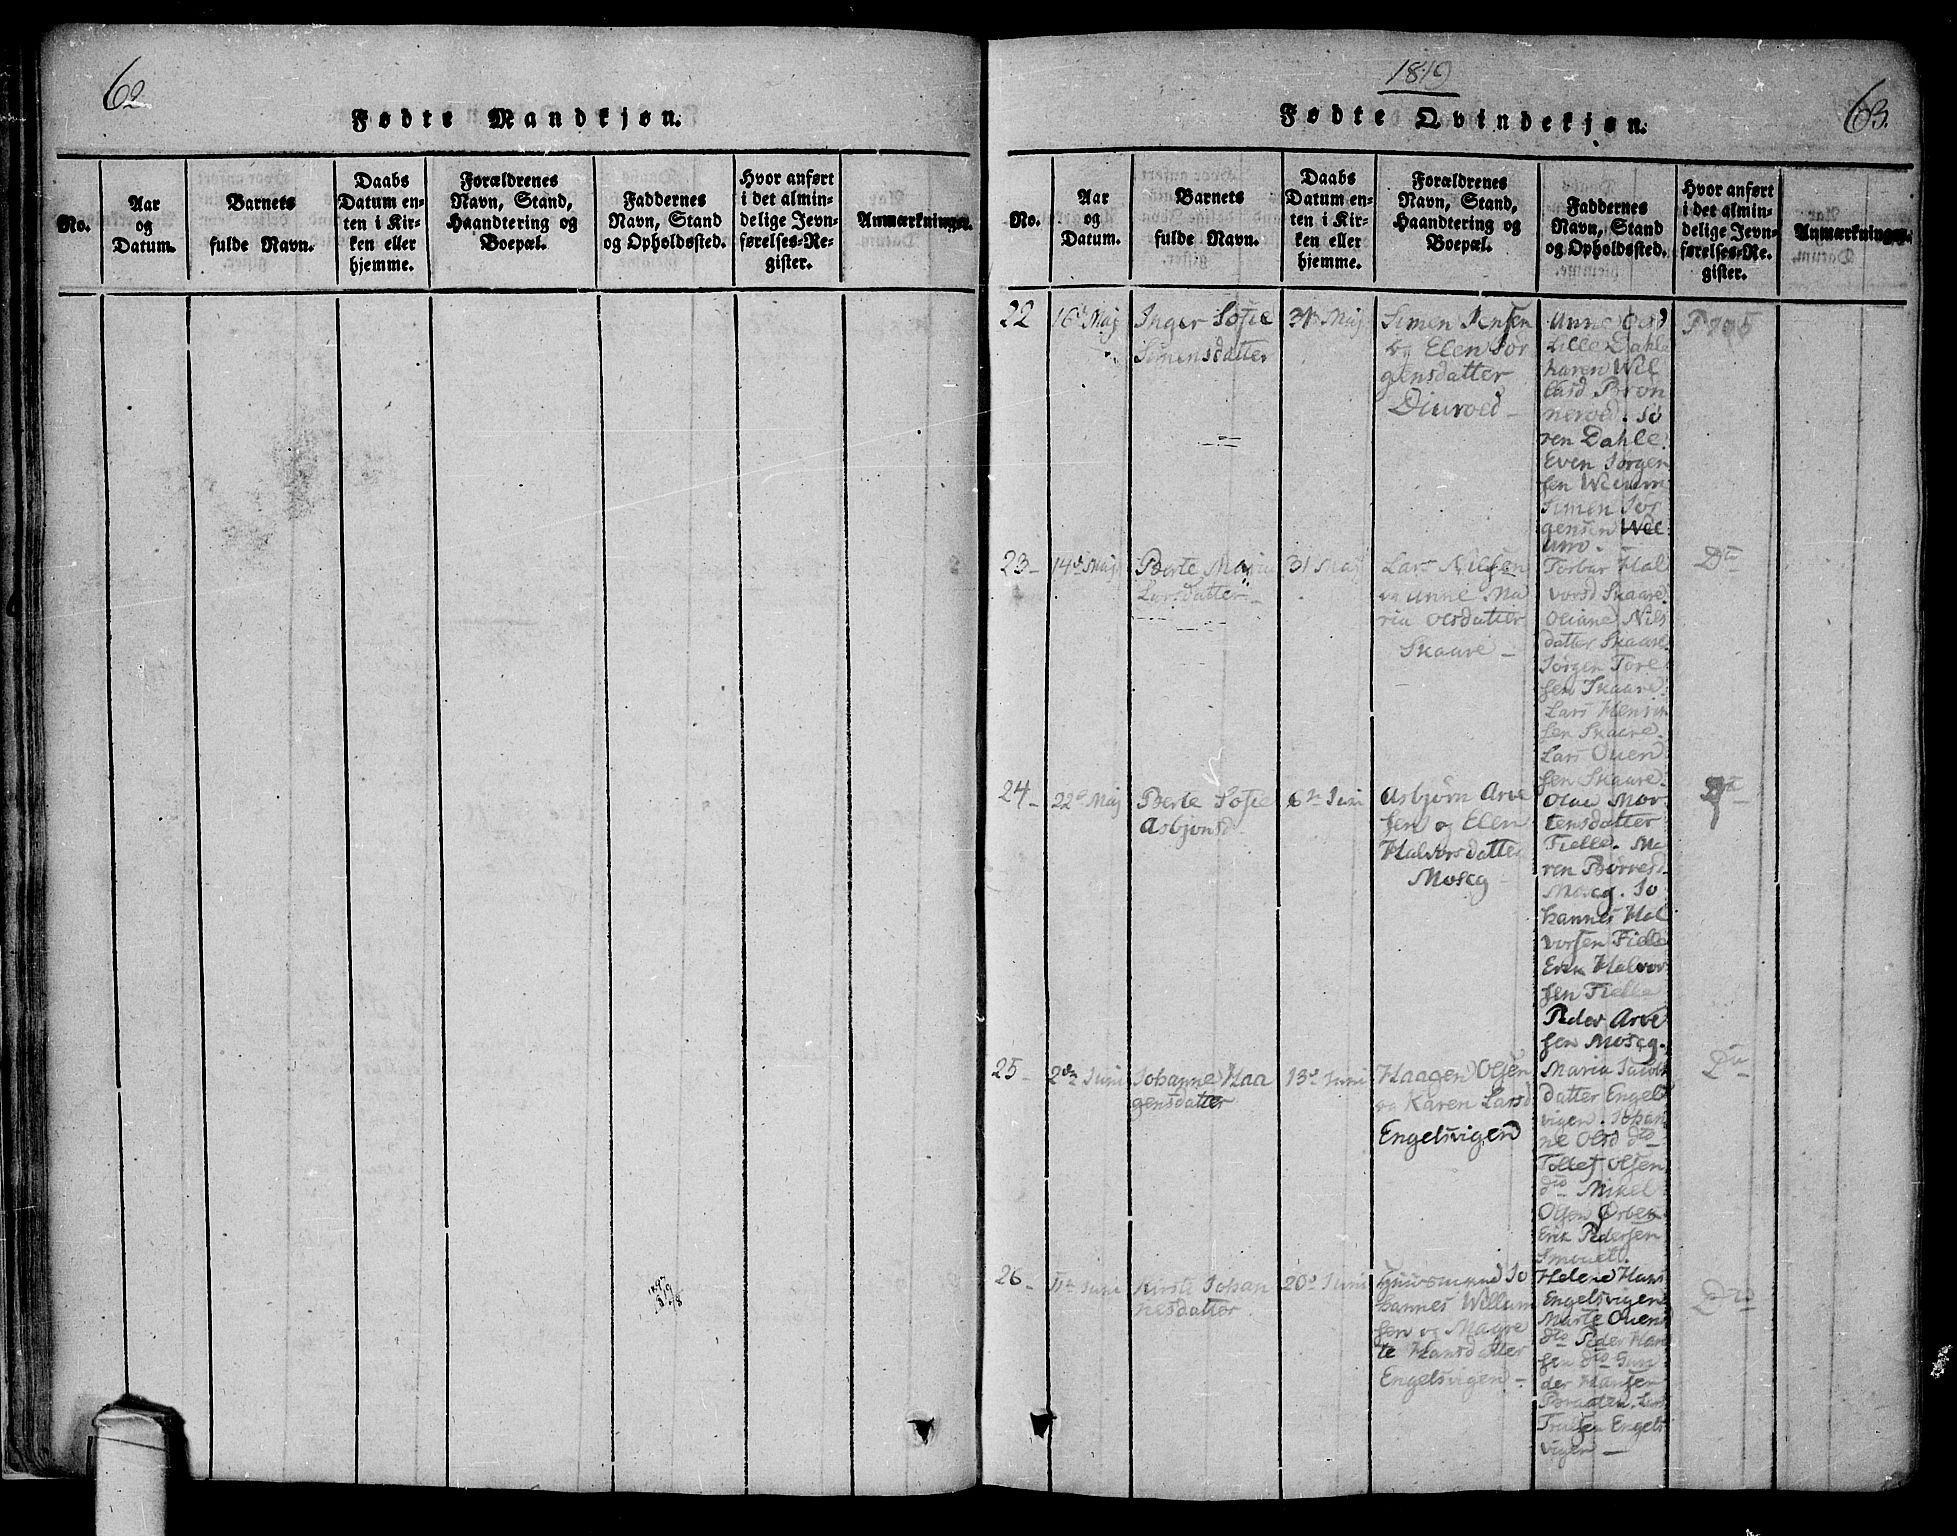 62
Fødte Mandkjøn.
No.
Aar
og
Datum.
Barnets
fulde Navn.
Daabs
Datum en-
ten i Kir-
ken eller
hjemme.
Forældrenes
Navn, Stand,
Haandtering og
Boepæl.
Faddernes
Navn, Stand
og Opholdssted.
Hvor anført
i det almin-
delige Jevn-
førelses-Re-
gister.
Anmærkninger.
1819
63.
Fødte Qvindekjøn.
No.
Aar
og
Datum.
Barnets
fulde Navn.
Daabs
Datum en-
ten i Kir-
ken eller
hjemme.
Forældrenes
Navn, Stand,
Haandtering og
Boepæl.
Faddernes
Navn, Stand
og Opholdssted.
Hvor anført
i det almin-
delige Jevn-
førelses-Re-
gister.
Anmærkninger.
22
16de Maj
Inger Sofie
Simensdatter
31te Maj
Simen Jensen
og Elen Jor
gensdatter
Diuroed -
Anne Olsd
Lille Dahle
Karen Wil
lasd Brøn
neroed. So
ren Dahle.
Even Jorgen
sen Welum
Simen Jor
gensen Wel
um -
23 -
14de Maj
Berte Maria
Larsdatter -
31 Maj
Lars Nilsen
og Anne Ma
ria Olsdatter
Skaare -
Torbør Hal
vorsd Skaare.
Oliane Nils
datter Skaare.
Jørgen Tore
sen Skaare.
Lars Henrik
sen Skaare.
Lars Ouen
sen Skaare.
Dto
24 -
22de Maj
Berte Sofie
Asbjønsd
6te Juni
Asbjørn Arve
sen og Elen
Halvorsdatter
Moseg -
Olau Mor
tensdatter
Fielle. Ma
ren Børresd
Moseg. Jo
hannes Hal
vorsen Fielle
Erik Halvor
sen Fielle
Peder Arve
sen Moseg.
25 -
2den Juni
Johanne Haa
gensdatter
13de Juni
Haagen Olsen
og Karen Larsd
Engelsvigen
Maria Jacobs
datter Engels
vigen. Johan
ne Olsd dto -
Tollef Olsen
dto - Mikel
Olsen Ørben
Erik Pedersen
Smouelt.
Dto
26 -
11te Juni
Kirste Johan
nesdatter
20de Juni
Huusmand Jo
hannes Willum
sen og Magre
te Hansdatter
Engelsvigen -
Helene Hans
Engelsvigen
Marte Ouens
dto Peder Han
sen dto - Gun
der Hansen
Braaten. Lars
Trulsen Engels
vigen -
Dto